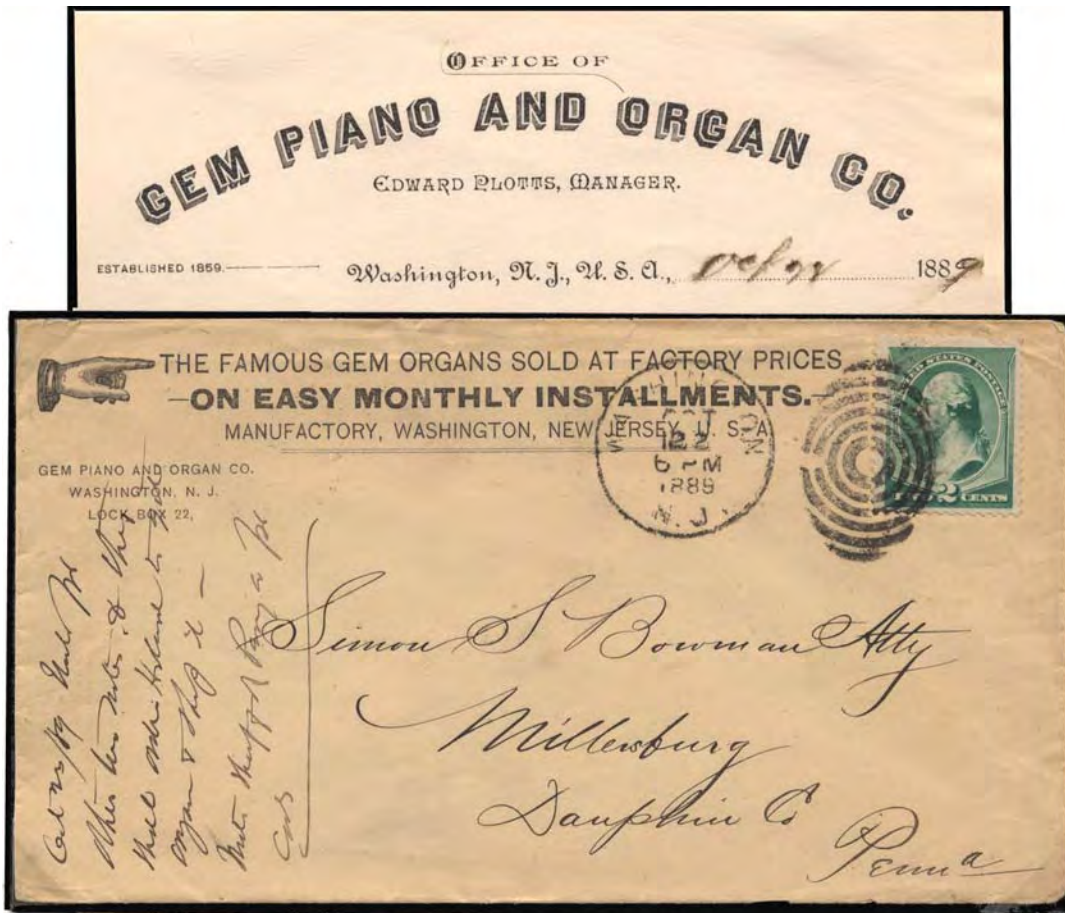 OFFICE OF
GEM PIANO AND ORGAN CO.
EDWARD PLOTTS, MANAGER.
ESTABLISHED 1859.
Washington, N. J., U. S. A., Oct 22 1889
THE FAMOUS GEM ORGANS SOLD AT FACTORY PRICES
—ON EASY MONTHLY INSTALLMENTS.—
MANUFACTORY, WASHINGTON, NEW JERSEY, U. S. A.
GEM PIANO AND ORGAN CO.
WASHINGTON, N. J.
LOCK BOX 22,
WASHINGTON
OCT
22
6 PM
1889
N. J.
UNITED STATES POSTAGE
TWO 2 CENTS
Simon S Bowman Atty
Millersburg
Dauphin Co
Penna
other two notes & they
organ & ship it —